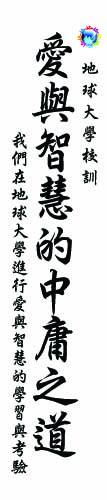 地球大學校訓
愛與智慧的中庸之道
我們在地球大學進行愛與智慧的學習與考驗